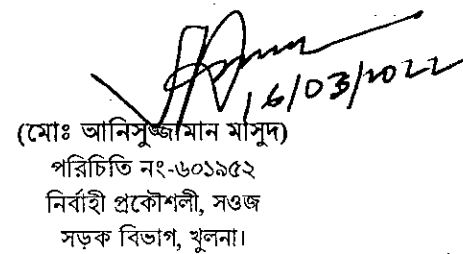 16/03/2022
(মোঃ আনিসুজ্জামান মাসুদ)
পরিচিতি নং-৬০১৯৫২
নির্বাহী প্রকৌশলী, সওজ
সড়ক বিভাগ, খুলনা।